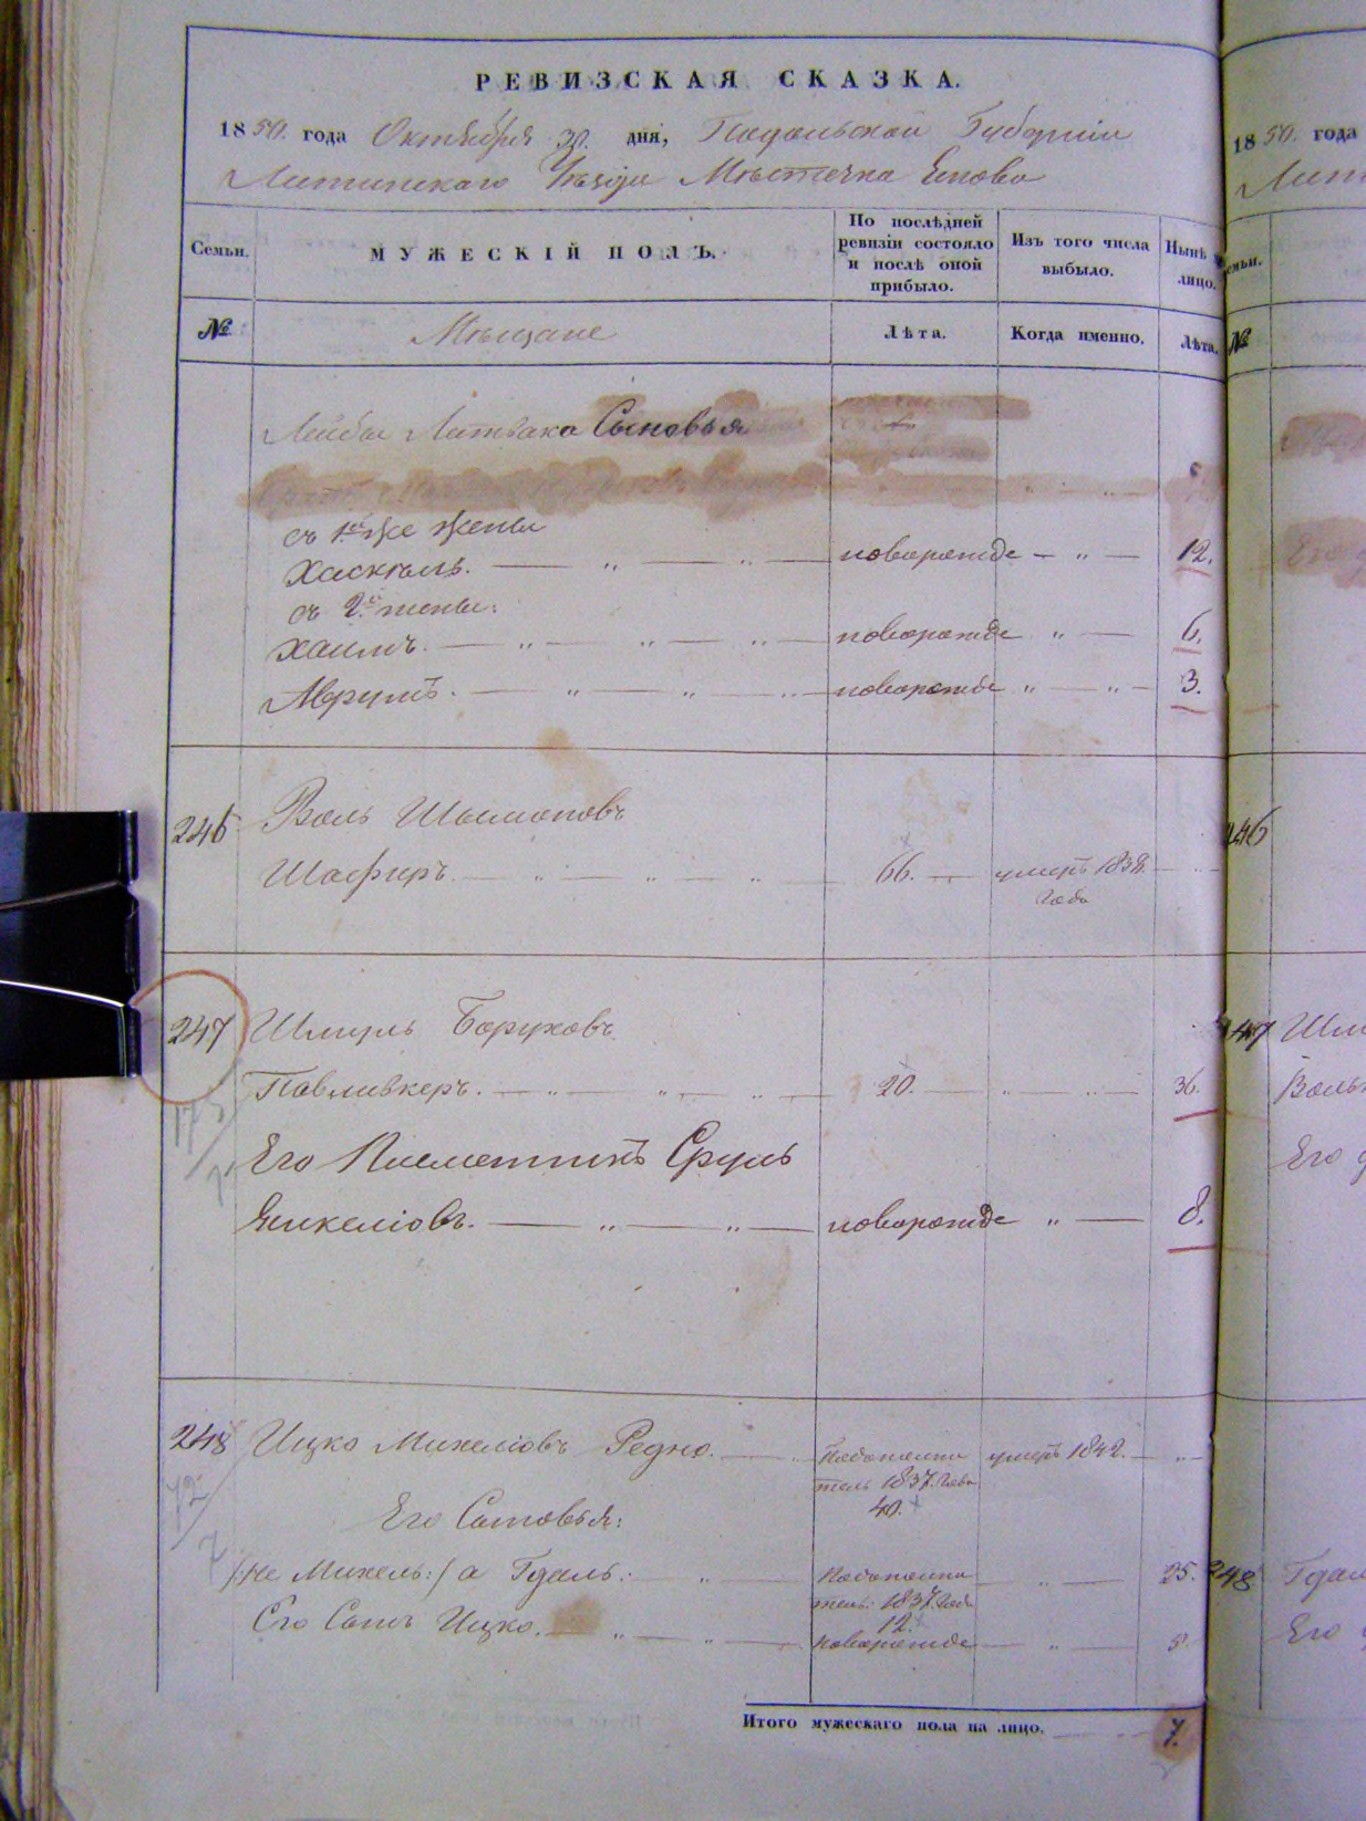 РЕВИЗСКАЯ СКАЗКА.
1850. года Октября 30. дня, Подольской Губернии
Литинскаго Уѣзда Мѣстечка
Семьи.
МУЖЕСКІЙ ПОЛЪ.
По послѣдней
ревизіи состояло
и послѣ оной
прибыло.
Изъ того числа
выбыло.
Нынѣ
лицо.
№
Мѣщане
Лѣта.
Когда именно.
Лѣта.
Лейбы Литвака Сыновья
съ 1й же жены
Хаскель. — „ — „ — новорожде — „ — 12.
съ 2й жены:
Хаимъ. — „ — „ — „ — новорожде „ — 6.
Аврумъ. — „ — „ — „ — новорожде „ — „ — 3.
246 Воль Шымоновъ
Шафиръ. — „ — „ — „ — 66. — умеръ 1838. — „ —
года
247 Шмуль Боруховъ
Павливкеръ. — „ — „ — „ — 20. — „ — „ — 36.
Его Племенникъ Сруль
Янкеліовъ. — „ — „ — новорожде „ — 8.
248 Ицко Михеліовъ Редно. — „ — умеръ 1842. — „ —
1837. года
40.
Его Сыновья:
/:не Михель:/ а Гдаль: — „ — „ — 25.
1837. года
12.
Его Сынъ Ицко. — „ — „ — новорожде — „ — 5.
Итого мужескаго пола на лицо. — 7.
1850. года
Лит
емьи.
№
246
247 Шм
Воль
Его д
248 Гдал
Его